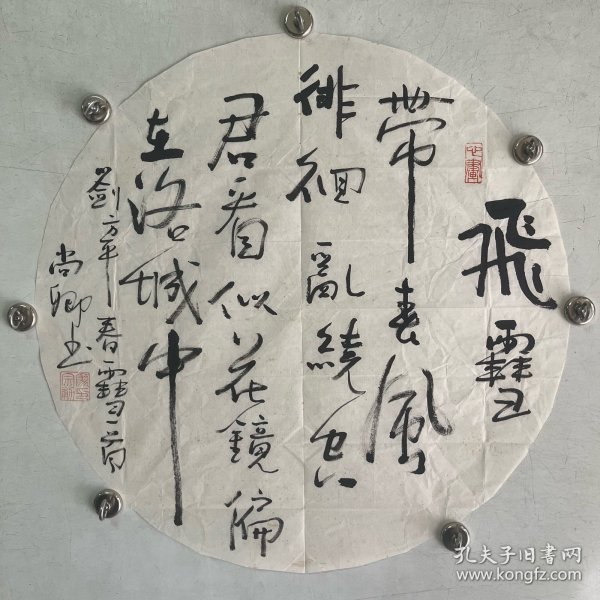 飛雪
帶春風
徘徊亂繞空
君看似花鏡偏
在洛城中
劉方平春雪一首
尚卿书
孔夫子旧書网
www.kongfz.com